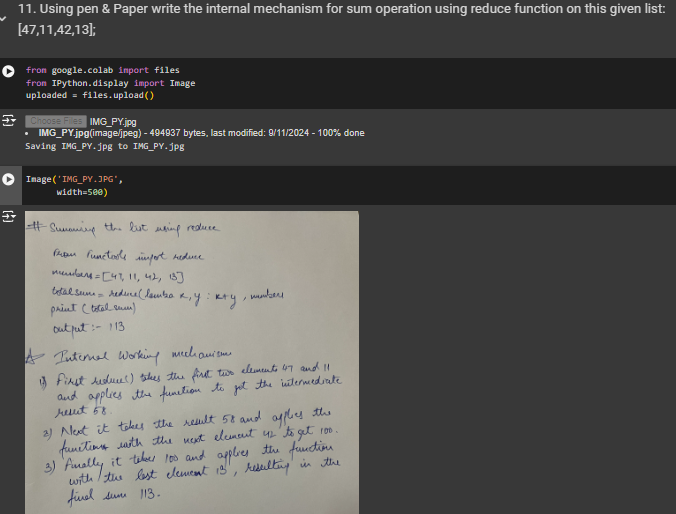 11. Using pen & Paper write the internal mechanism for sum operation using reduce function on this given list:
[47,11,42,13];
from google.colab import files
from IPython.display import Image
uploaded = files.upload()
Choose Files IMG_PY.jpg
IMG_PY.jpg(image/jpeg) - 494937 bytes, last modified: 9/11/2024 - 100% done
Saving IMG_PY.jpg to IMG_PY.jpg
Image('IMG_PY.JPG',
width=500)
# Summing the list using reduce
From functools import reduce
numbers = [47, 11, 42, 13]
total sum = reduce(lamba x, y : x+y , numbers
print (total sum)
output :- 113
Internal Working mechanism
1) First reduce() takes the first two elements 47 and 11
and applies the function to get the intermediate
result 58.
2) Next it takes the result 58 and applies the
function with the next element 42 to get 100.
3) Finally it takes 100 and applies the function
with the last element 13, resulting in the
final sum 113.